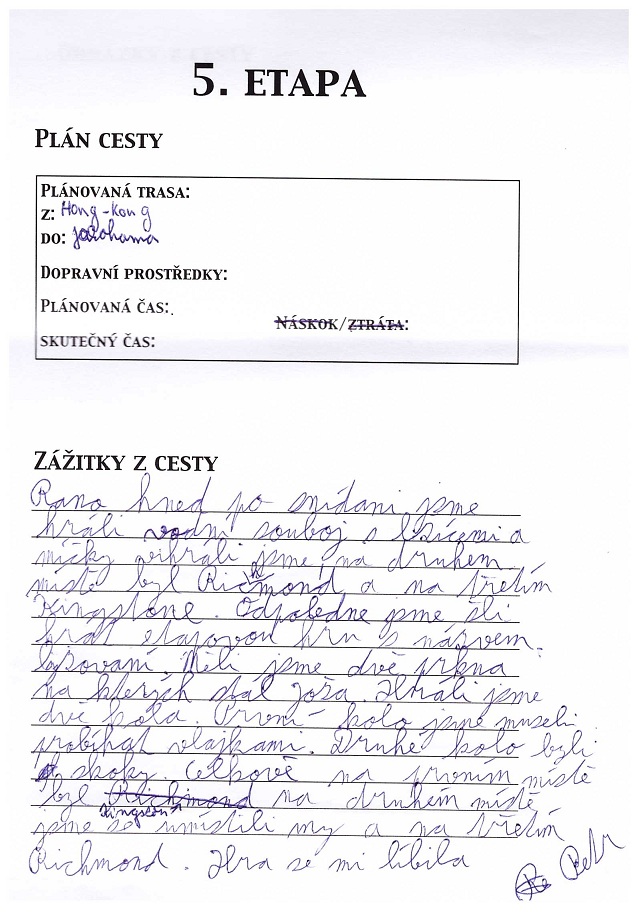 5. ETAPA
PLÁN CESTY
PLÁNOVANÁ TRASA:
Z: Hong-Kong
DO: Jokohama
DOPRAVNÍ PROSTŘEDKY:
PLÁNOVANÁ ČAS:
NÁSKOK/ZTRÁTA:
SKUTEČNÝ ČAS:
ZÁŽITKY Z CESTY
Rano hned po snídani jsme
hráli vodní souboj s lžícemi a
míčky vihráli jsme, na druhem
místě byl Richmond a na třetím
Kingstone. Odpoledne jsme šli
hrát etapovou hru s názvem
lyžovaní. Měli jsme dvě prkna
na kterých stál Joža. Hráli jsme
dvě kola. První kolo jsme museli
probíhat vlajkami. Druhé kolo byli
skoky. Celkově na prvním místě
byl Richmond Kingston na druhém místě
jsme se umístili my a na třetím
Richmond. Hra se mi líbila
Petr